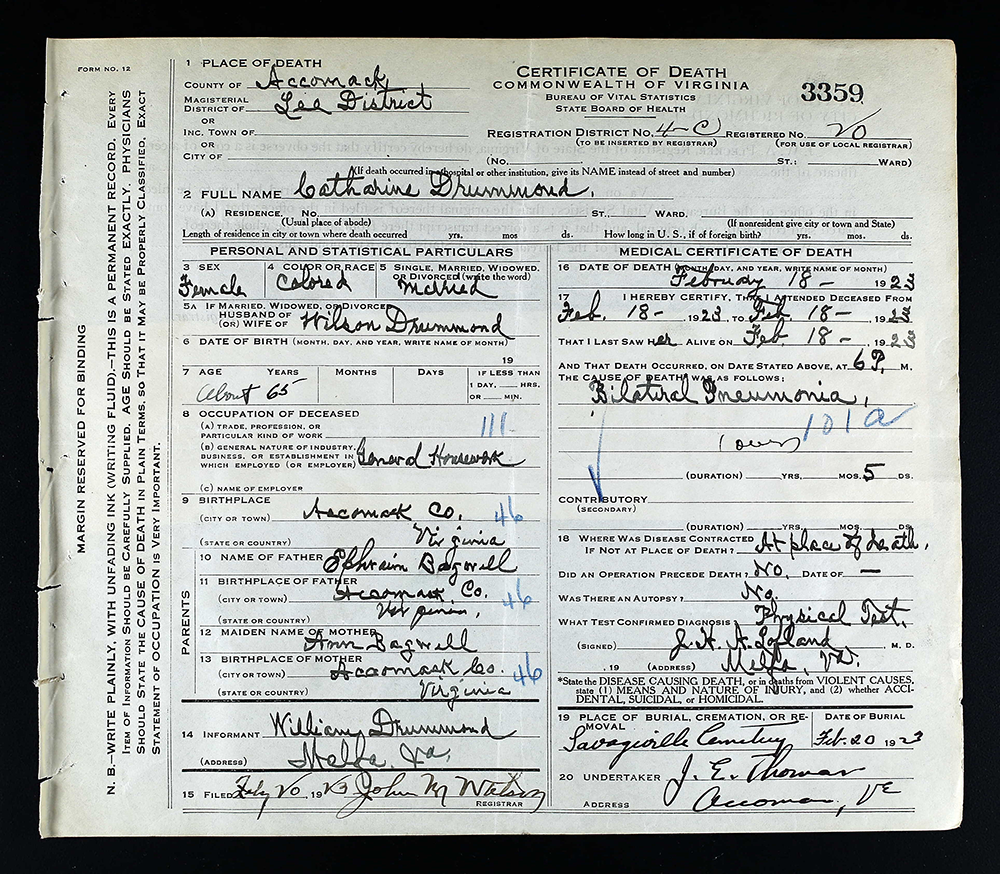 FORM NO. 12
MARGIN RESERVED FOR BINDING
N. B.—WRITE PLAINLY, WITH UNFADING INK (WRITING FLUID).—THIS IS A PERMANENT RECORD. EVERY
ITEM OF INFORMATION SHOULD BE CAREFULLY SUPPLIED. AGE SHOULD BE STATED EXACTLY. PHYSICIANS
SHOULD STATE THE CAUSE OF DEATH IN PLAIN TERMS, SO THAT IT MAY BE PROPERLY CLASSIFIED. EXACT
STATEMENT OF OCCUPATION IS VERY IMPORTANT.
1 PLACE OF DEATH
COUNTY OF Accomack
MAGISTERIAL
DISTRICT OF Lee District
OR
INC. TOWN OF
OR
CITY OF
CERTIFICATE OF DEATH
COMMONWEALTH OF VIRGINIA
BUREAU OF VITAL STATISTICS
STATE BOARD OF HEALTH
3359
REGISTRATION DISTRICT NO. 4-C REGISTERED NO. 20
(TO BE INSERTED BY REGISTRAR) (FOR USE OF LOCAL REGISTRAR)
(No. ST.; WARD)
(If death occurred in a hospital or other institution, give its NAME instead of street and number)
2 FULL NAME Catharine Drummond.
(A) RESIDENCE. No. ST., WARD.
(Usual place of abode) (If nonresident give city or town and State)
Length of residence in city or town where death occurred yrs. mos ds. How long in U. S., if of foreign birth? yrs. mos. ds.
PERSONAL AND STATISTICAL PARTICULARS
3 SEX
Female
4 COLOR OR RACE
Colored
5 SINGLE, MARRIED, WIDOWED,
OR DIVORCED (write the word)
Married
5A IF MARRIED, WIDOWED, OR DIVORCED
HUSBAND OF
(OR) WIFE OF Wilson Drummond
6 DATE OF BIRTH (MONTH, DAY, AND YEAR, WRITE NAME OF MONTH)
19
7 AGE YEARS MONTHS DAYS IF LESS THAN
1 DAY, HRS.
OR MIN.
About 65
8 OCCUPATION OF DECEASED
(A) TRADE, PROFESSION, OR
PARTICULAR KIND OF WORK
111-
(B) GENERAL NATURE OF INDUSTRY,
BUSINESS, OR ESTABLISHMENT IN
WHICH EMPLOYED (OR EMPLOYER) General Housework
(C) NAME OF EMPLOYER
9 BIRTHPLACE
(CITY OR TOWN) Accomack Co. 46
(STATE OR COUNTRY) Virginia
PARENTS
10 NAME OF FATHER Ephraim Bagwell
11 BIRTHPLACE OF FATHER
(CITY OR TOWN) Accomack Co. 46
(STATE OR COUNTRY) Virginia,
12 MAIDEN NAME OF MOTHER
Ann Bagwell
13 BIRTHPLACE OF MOTHER
(CITY OR TOWN) Accomack Co. 46
(STATE OR COUNTRY) Virginia
14 INFORMANT William Drummond
(ADDRESS) Melfa, Va.
15 FILED Feby 20, 1923 John M Watson
REGISTRAR
MEDICAL CERTIFICATE OF DEATH
16 DATE OF DEATH (MONTH, DAY, AND YEAR, WRITE NAME OF MONTH)
February 18 - 1923
17 I HEREBY CERTIFY, THAT I ATTENDED DECEASED FROM
Feb. 18 - , 1923, TO Feb 18 - , 1923
THAT I LAST SAW her ALIVE ON Feb 18 - , 1923
AND THAT DEATH OCCURRED, ON DATE STATED ABOVE, AT 6 P. M.
THE CAUSE OF DEATH* WAS AS FOLLOWS:
Bilateral Pneumonia,
101a
(over)
(DURATION) YRS. MOS. 5 DS.
CONTRIBUTORY
(SECONDARY)
(DURATION) YRS. MOS. DS.
18 WHERE WAS DISEASE CONTRACTED
IF NOT AT PLACE OF DEATH? At place of death.
DID AN OPERATION PRECEDE DEATH? No. DATE OF —
WAS THERE AN AUTOPSY? No.
WHAT TEST CONFIRMED DIAGNOSIS? Physical Test.
(SIGNED) J. H. A. Lofland M. D.
, 19 (ADDRESS) Melfa, Va.
*State the DISEASE CAUSING DEATH, or in deaths from VIOLENT CAUSES,
state (1) MEANS AND NATURE OF INJURY, and (2) whether ACCI-
DENTAL, SUICIDAL, or HOMICIDAL.
19 PLACE OF BURIAL, CREMATION, OR RE-
MOVAL
Savageville Cemetery
DATE OF BURIAL
Feb. 20 1923
20 UNDERTAKER J. E. Thomas
ADDRESS Accomac, Va